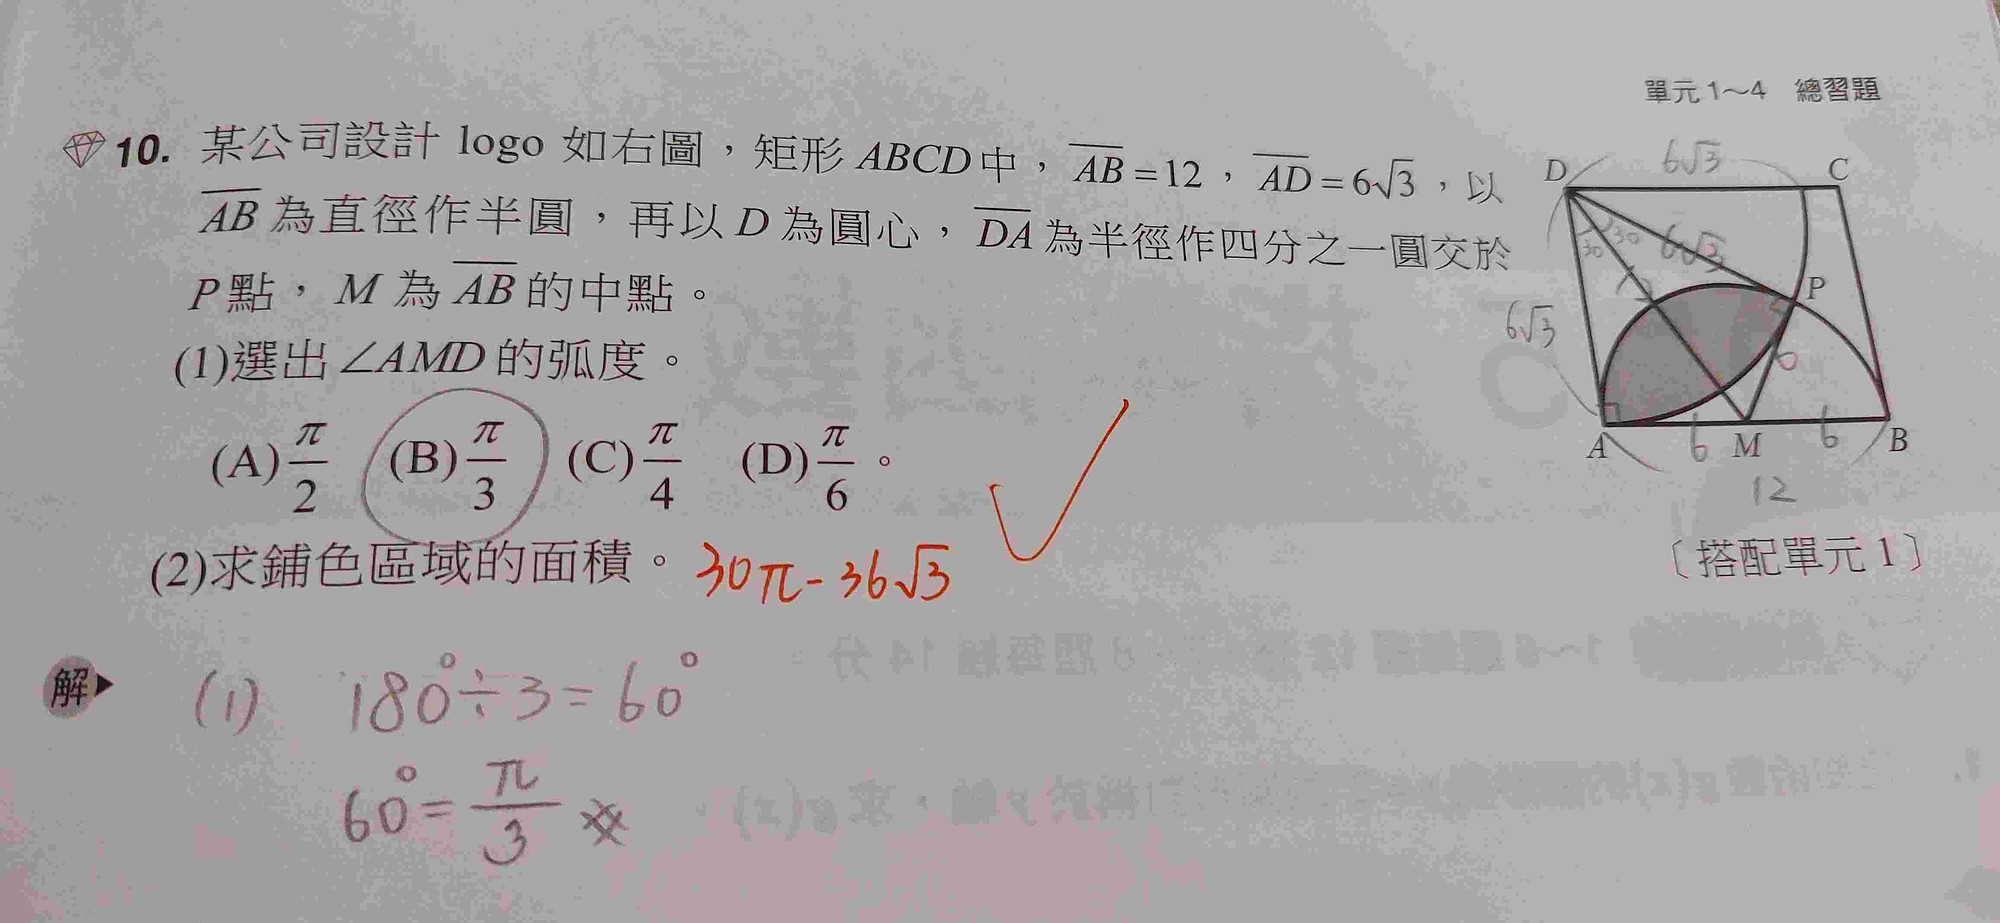 單元1～4 總習題
10. 某公司設計 logo 如右圖，矩形 ABCD 中，AB=12，AD=6√3，以
AB 為直徑作半圓，再以 D 為圓心，DA 為半徑作四分之一圓交於
P 點，M 為 AB 的中點。
(1)選出∠AMD 的弧度。
(A)π/2 (B)π/3 (C)π/4 (D)π/6。
(2)求鋪色區域的面積。 30π-36√3
D 6√3 C
30 30 6√3
P
6√3
6
A 6 M 6 B
12
〔搭配單元1〕
解 (1) 180°÷3=60°
60°=π/3